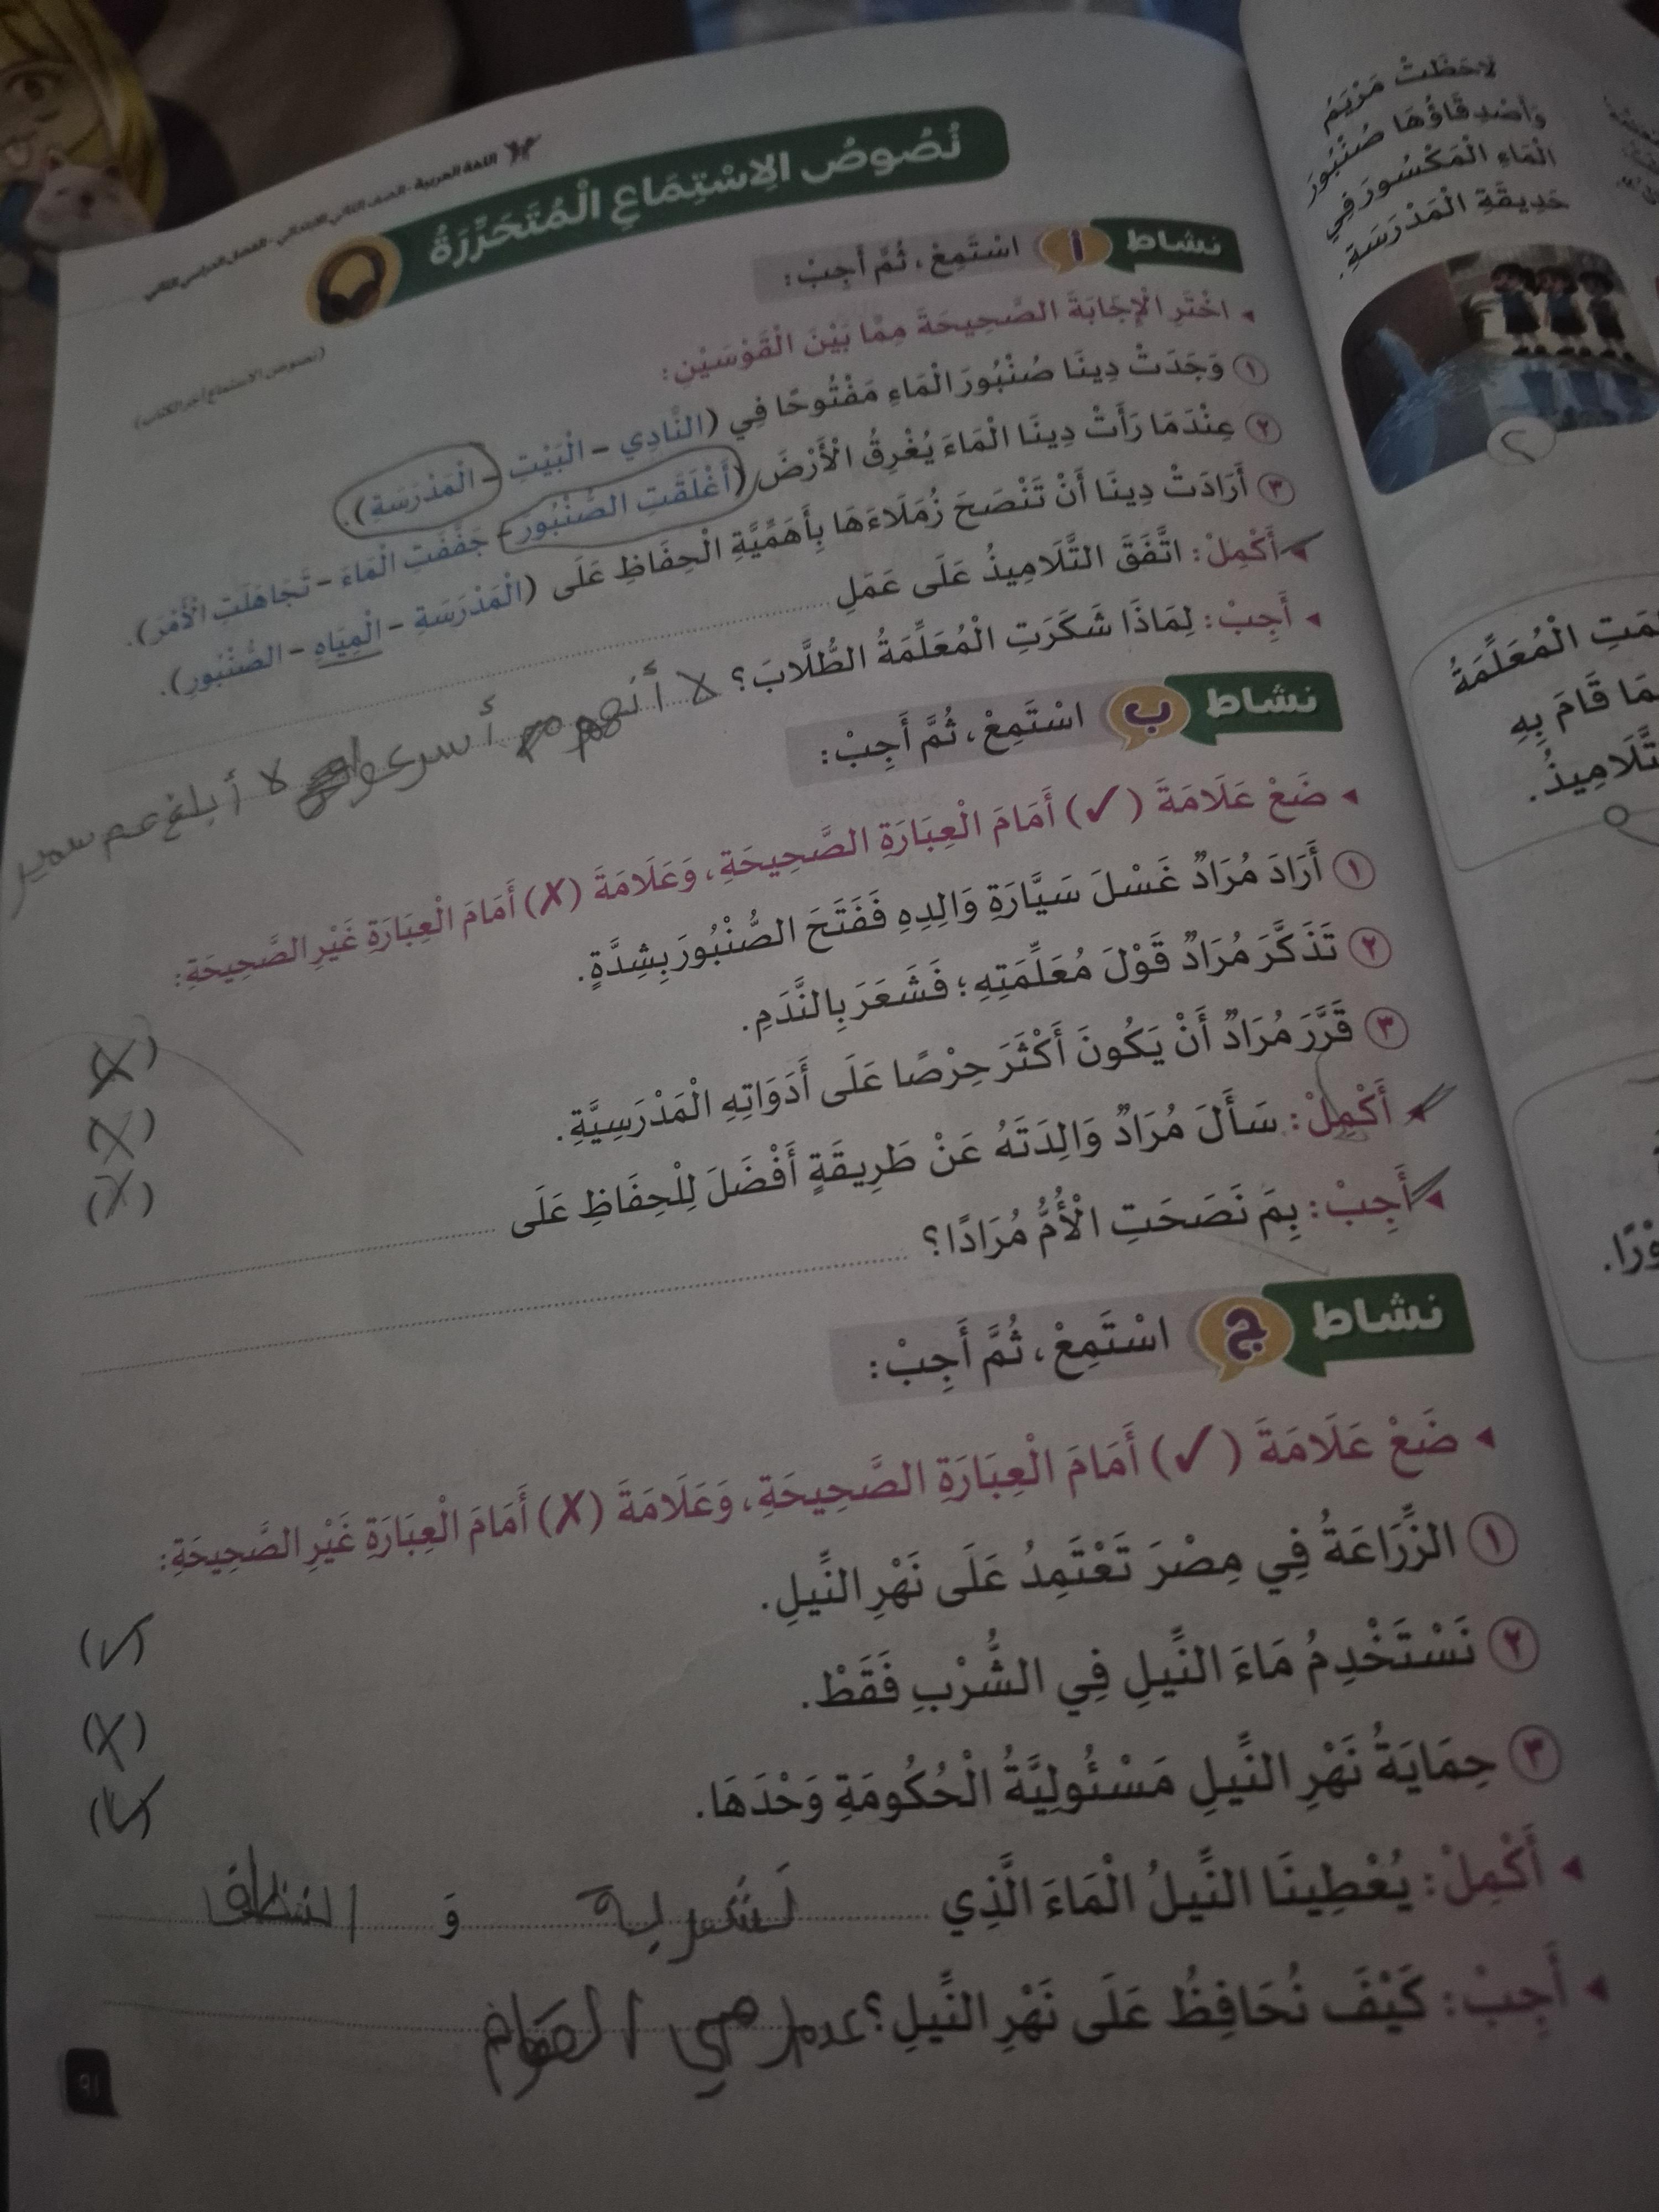 اللغة العربية - الصف الثاني الابتدائي - الفصل الدراسي الثاني
نُصُوصُ الِاسْتِمَاعِ الْمُتَحَرِّرَةُ
(نصوص الاستماع آخر الكتاب)
نشاط أ اسْتَمِعْ، ثُمَّ أَجِبْ:
اخْتَرِ الْإِجَابَةَ الصَّحِيحَةَ مِمَّا بَيْنَ الْقَوْسَيْنِ:
١ وَجَدَتْ دِينَا صُنْبُورَ الْمَاءِ مَفْتُوحًا فِي (النَّادِي - الْبَيْتِ - الْمَدْرَسَةِ).
٢ عِنْدَمَا رَأَتْ دِينَا الْمَاءَ يُغْرِقُ الْأَرْضَ (أَغْلَقَتِ الصُّنْبُورَ - جَفَّفَتِ الْمَاءَ - تَجَاهَلَتِ الْأَمْرَ).
٣ أَرَادَتْ دِينَا أَنْ تَنْصَحَ زُمَلَاءَهَا بِأَهَمِّيَّةِ الْحِفَاظِ عَلَى (الْمَدْرَسَةِ - الْمِيَاهِ - الصُّنْبُورِ).
أَكْمِلْ: اتَّفَقَ التَّلَامِيذُ عَلَى عَمَلِ
أَجِبْ: لِمَاذَا شَكَرَتِ الْمُعَلِّمَةُ الطُّلَّابَ؟ لا أنهم أسرعوا لا أبلغ عم سمير
نشاط ب اسْتَمِعْ، ثُمَّ أَجِبْ:
ضَعْ عَلَامَةَ (✓) أَمَامَ الْعِبَارَةِ الصَّحِيحَةِ، وَعَلَامَةَ (✗) أَمَامَ الْعِبَارَةِ غَيْرِ الصَّحِيحَةِ:
١ أَرَادَ مُرَادٌ غَسْلَ سَيَّارَةِ وَالِدِهِ فَفَتَحَ الصُّنْبُورَ بِشِدَّةٍ. (✗)
٢ تَذَكَّرَ مُرَادٌ قَوْلَ مُعَلِّمَتِهِ؛ فَشَعَرَ بِالنَّدَمِ. (✗)
٣ قَرَّرَ مُرَادٌ أَنْ يَكُونَ أَكْثَرَ حِرْصًا عَلَى أَدَوَاتِهِ الْمَدْرَسِيَّةِ. (✗)
أَكْمِلْ: سَأَلَ مُرَادٌ وَالِدَتَهُ عَنْ طَرِيقَةٍ أَفْضَلَ لِلْحِفَاظِ عَلَى
أَجِبْ: بِمَ نَصَحَتِ الْأُمُّ مُرَادًا؟
نشاط ج اسْتَمِعْ، ثُمَّ أَجِبْ:
ضَعْ عَلَامَةَ (✓) أَمَامَ الْعِبَارَةِ الصَّحِيحَةِ، وَعَلَامَةَ (✗) أَمَامَ الْعِبَارَةِ غَيْرِ الصَّحِيحَةِ:
١ الزِّرَاعَةُ فِي مِصْرَ تَعْتَمِدُ عَلَى نَهْرِ النِّيلِ. (✓)
٢ نَسْتَخْدِمُ مَاءَ النِّيلِ فِي الشُّرْبِ فَقَطْ. (✗)
٣ حِمَايَةُ نَهْرِ النِّيلِ مَسْئُولِيَّةُ الْحُكُومَةِ وَحْدَهَا. (✓)
أَكْمِلْ: يُعْطِينَا النِّيلُ الْمَاءَ الَّذِي نَشربه وَ
أَجِبْ: كَيْفَ نُحَافِظُ عَلَى نَهْرِ النِّيلِ؟ عدم رمي
٩١
لَاحَظَتْ مَرْيَمُ
وَأَصْدِقَاؤُهَا صُنْبُورَ
الْمَاءِ الْمَكْسُورَ فِي
حَدِيقَةِ الْمَدْرَسَةِ.
٢
الْمُعَلِّمَةُ
قَامَ بِهِ